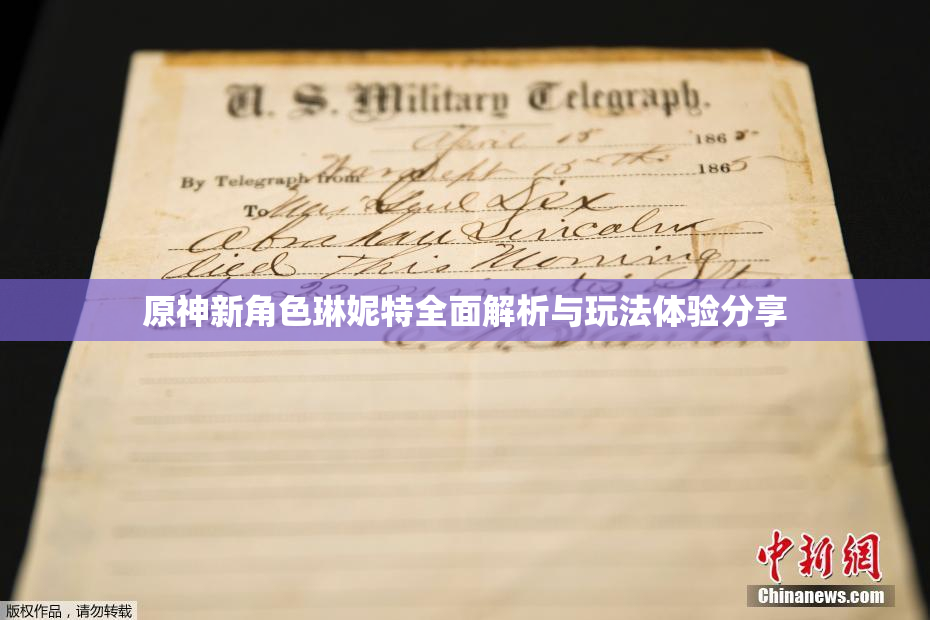 U. S. Military Telegraph.
April 15 1865
By Telegraph from War Dept 15th 1865
To Maj Genl Dix
Abraham Lincoln
died This Morning
at 22 minutes after
原神新角色琳妮特全面解析与玩法体验分享
E. M. Stanton
中新網
Chinanews.com
版权作品，请勿转载